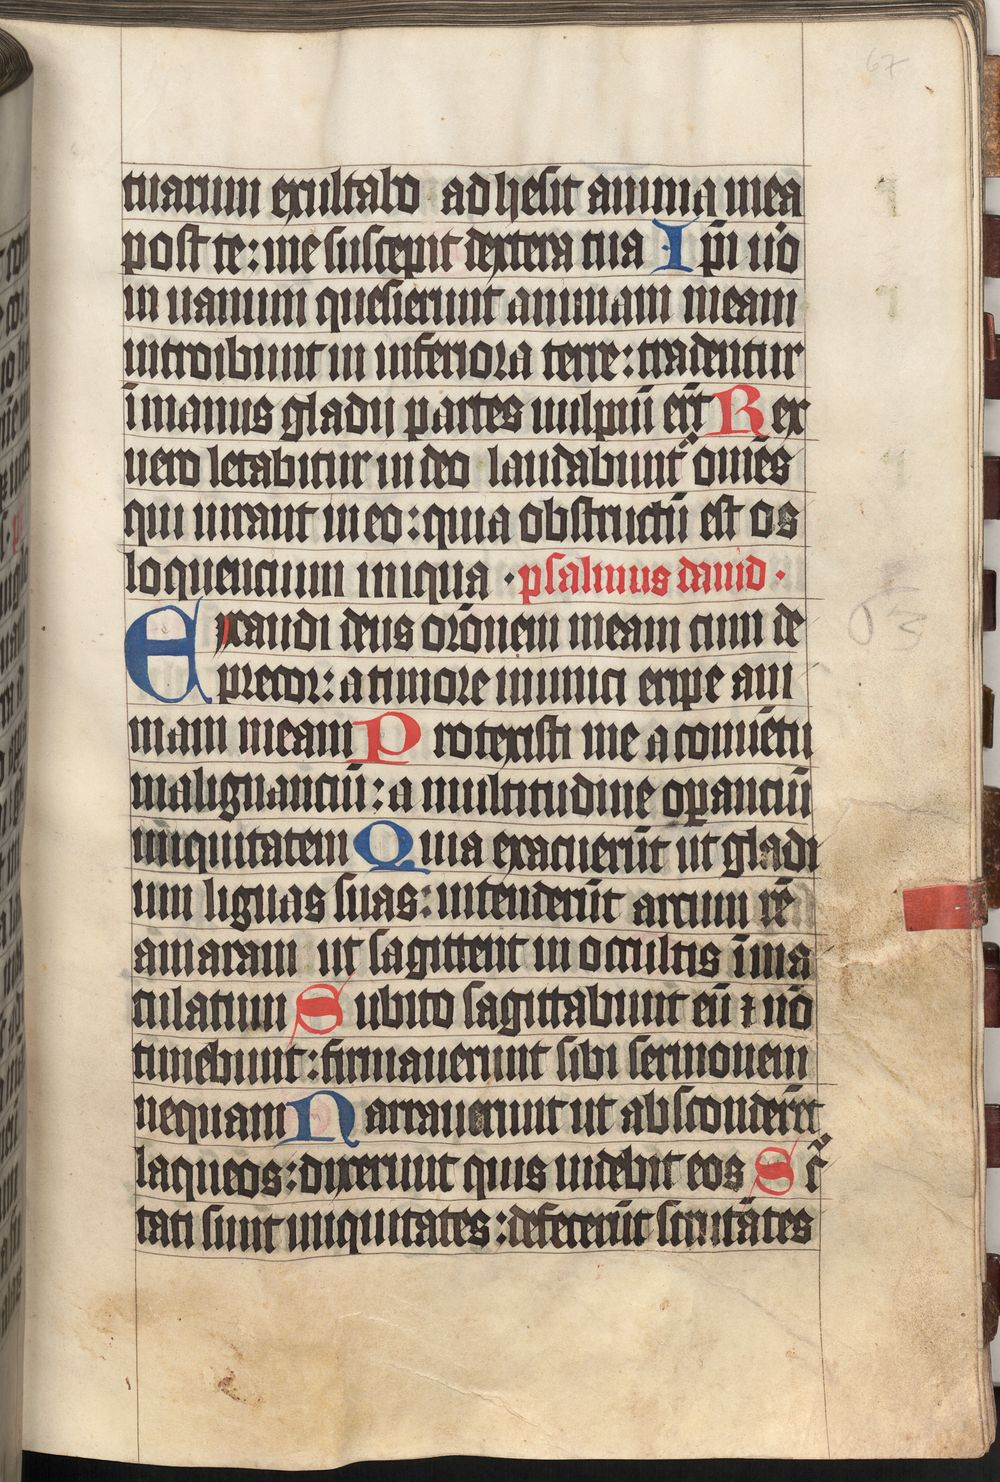 67
tuarum exultabo adhesit anima mea
post te: me suscepit dextera tua Ipi uo
in uanum quesierunt animam meam
introibunt in inferiora terre: tradentur
ī manus gladii partes uulpiū erūt Rex
uero letabitur in deo laudabunt᷑ omēs
qui iurant in eo: quia obstructū est os
loquencium iniqua · psalmus dauid ·
Exaudi deus orōnem meam cum de
precor: a timore inimici eripe ani
mam meam Protexisti me a conuētu
malignanciū: a multitudine oꝑanciū
iniquitatem Quia exacuerūt ut gladi
um liguas suas: intenderūt arcum rē
amaram ut sagittent in occultis īma
culatum Subito sagittabunt eū ⁊ nō
timebunt: firmauerunt sibi sermonem
nequam Narrauerunt ut absconderēt
laqueos: dixerunt quis uidebit eos Sc᷑
tati sunt iniquitates: defecerūt scrutātes
63